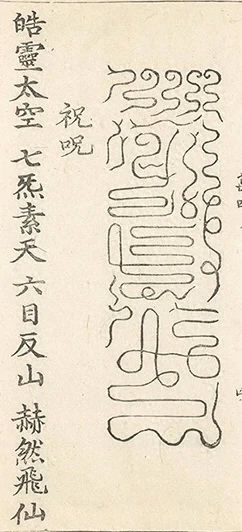 祝呪
皓靈太空 七炁素天 六目反山 赫然飛仙